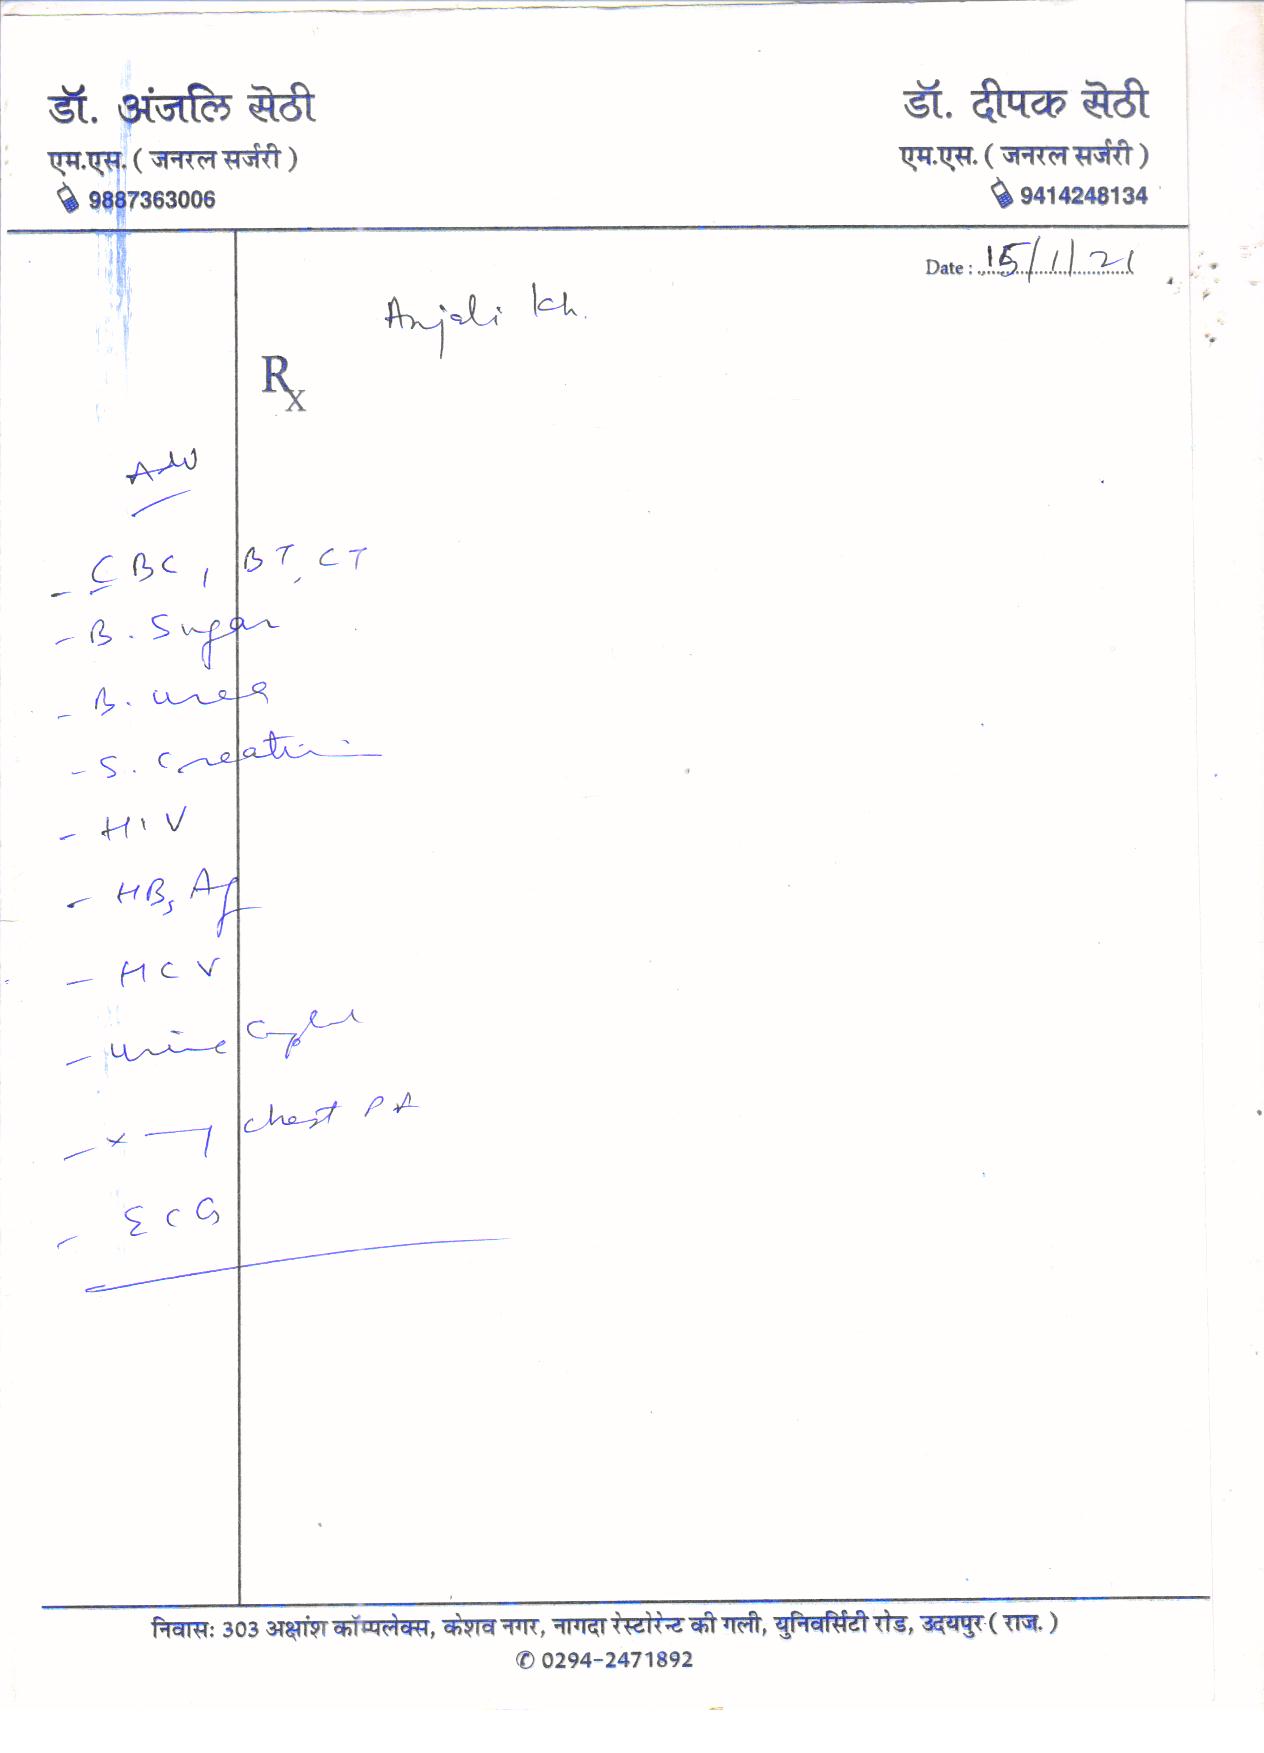 डॉ. अंजलि सेठी
एम.एस. ( जनरल सर्जरी )
9887363006
डॉ. दीपक सेठी
एम.एस. ( जनरल सर्जरी )
9414248134
Date : 15/1/21
Anjali Kh.
Rx
Adv
- CBC, BT, CT
- B. Sugar
- B. urea
- S. Creatin
- HIV
- HBsAg
- HCV
- Urine
- X-ray chest PA
- ECG
निवासः 303 अक्षांश कॉम्पलेक्स, केशव नगर, नागदा रेस्टोरेन्ट की गली, युनिवर्सिटी रोड, उदयपुर ( राज. )
✆ 0294-2471892